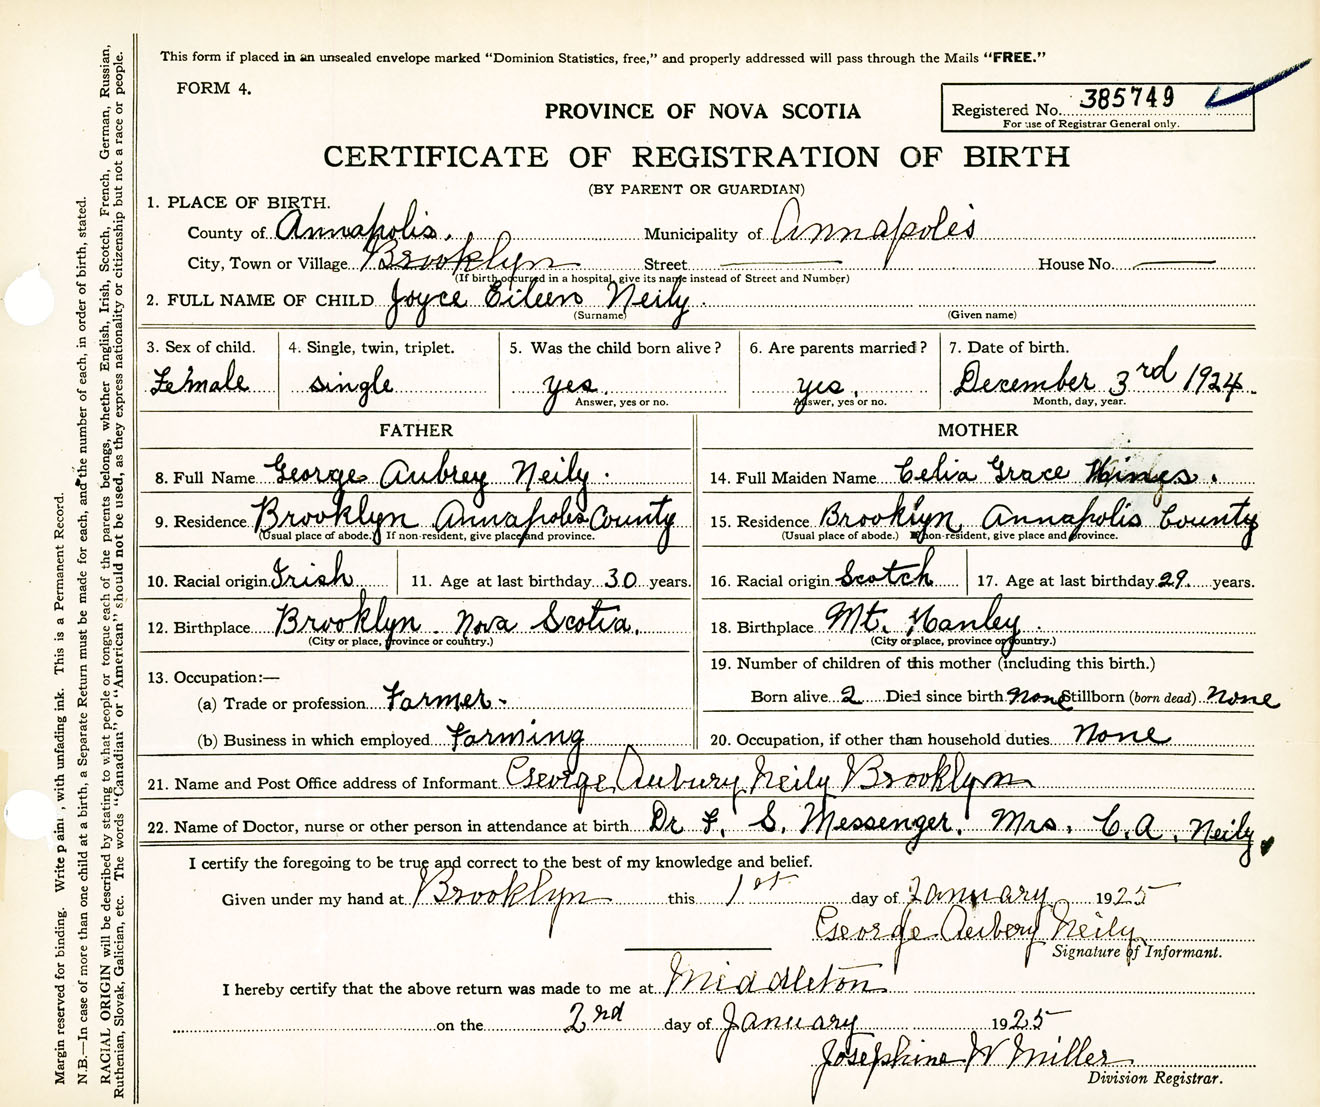 This form if placed in an unsealed envelope marked “Dominion Statistics, free,” and properly addressed will pass through the Mails “FREE.”
FORM 4.
Registered No. 385749
For use of Registrar General only.
PROVINCE OF NOVA SCOTIA
CERTIFICATE OF REGISTRATION OF BIRTH
(BY PARENT OR GUARDIAN)
1. PLACE OF BIRTH.
County of Annapolis. Municipality of Annapolis
City, Town or Village Brooklyn Street —— House No. ——
(If birth occurred in a hospital, give its name instead of Street and Number)
2. FULL NAME OF CHILD Joyce Eileen Neily.
(Surname) (Given name)
3. Sex of child. 4. Single, twin, triplet. 5. Was the child born alive? 6. Are parents married? 7. Date of birth.
Female single yes. yes. December 3rd 1924.
Answer, yes or no. Answer, yes or no. Month, day, year.
FATHER MOTHER
8. Full Name George Aubrey Neily. 14. Full Maiden Name Celia Grace Hines.
9. Residence Brooklyn Annapolis County 15. Residence Brooklyn, Annapolis County
(Usual place of abode.) If non-resident, give place and province. (Usual place of abode.) If non-resident, give place and province.
10. Racial origin Irish 11. Age at last birthday 30 years. 16. Racial origin Scotch 17. Age at last birthday 29 years.
12. Birthplace Brooklyn. Nova Scotia. 18. Birthplace Mt. Hanley.
(City or place, province or country.) (City or place, province or country.)
13. Occupation:— 19. Number of children of this mother (including this birth.)
(a) Trade or profession Farmer. Born alive 2 Died since birth None Stillborn (born dead) None
(b) Business in which employed Farming 20. Occupation, if other than household duties None
21. Name and Post Office address of Informant George Aubury Neily Brooklyn
22. Name of Doctor, nurse or other person in attendance at birth Dr F. S. Messenger. Mrs. C. A. Neily.
I certify the foregoing to be true and correct to the best of my knowledge and belief.
Given under my hand at Brooklyn this 1st day of January 1925
George Aubery Neily
Signature of Informant.
I hereby certify that the above return was made to me at Middleton
on the 2nd day of January 1925
Josephine W Miller
Division Registrar.
Margin reserved for binding. Write plainly, with unfading ink. This is a Permanent Record.
N.B.—In case of more than one child at a birth, a Separate Return must be made for each, and the number of each, in order of birth, stated.
RACIAL ORIGIN will be described by stating to what people or tongue each of the parents belongs, whether English, Irish, Scotch, French, German, Russian,
Ruthenian, Slovak, Galician, etc. The words “Canadian” or “American” should not be used, as they express nationality or citizenship but not a race or people.